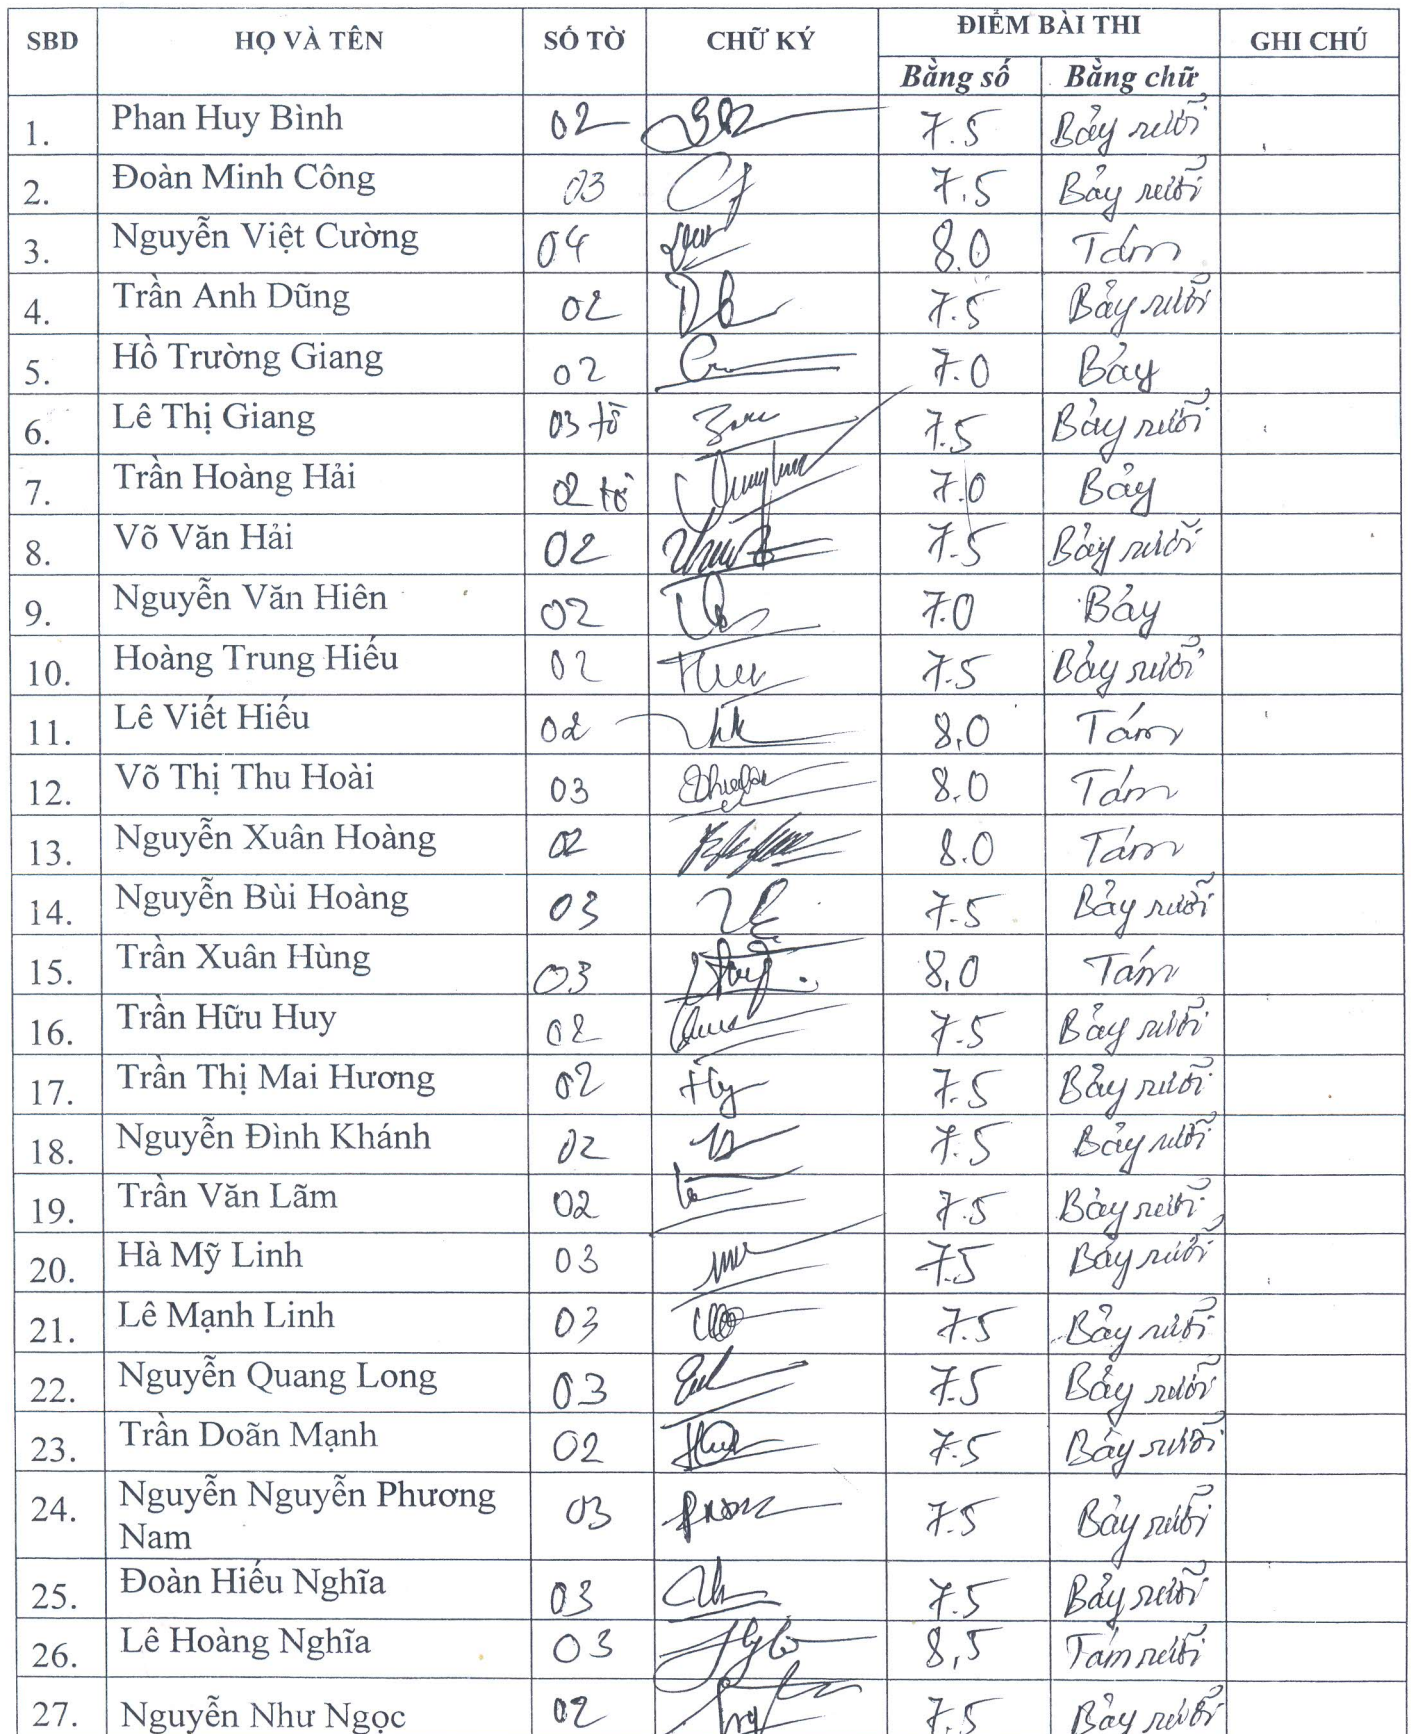 SBD HỌ VÀ TÊN SỐ TỜ CHỮ KÝ ĐIỂM BÀI THI GHI CHÚ
Bằng số Bằng chữ
1. Phan Huy Bình 02 7.5 Bảy rưỡi
2. Đoàn Minh Công 03 7.5 Bảy rưỡi
3. Nguyễn Việt Cường 04 8.0 Tám
4. Trần Anh Dũng 02 7.5 Bảy rưỡi
5. Hồ Trường Giang 02 7.0 Bảy
6. Lê Thị Giang 03 tờ 7.5 Bảy rưỡi
7. Trần Hoàng Hải 02 tờ 7.0 Bảy
8. Võ Văn Hải 02 7.5 Bảy rưỡi
9. Nguyễn Văn Hiên 02 7.0 Bảy
10. Hoàng Trung Hiếu 02 7.5 Bảy rưỡi
11. Lê Viết Hiếu 02 8,0 Tám
12. Võ Thị Thu Hoài 03 8.0 Tám
13. Nguyễn Xuân Hoàng 02 8.0 Tám
14. Nguyễn Bùi Hoàng 03 7.5 Bảy rưỡi
15. Trần Xuân Hùng 03 8,0 Tám
16. Trần Hữu Huy 02 7.5 Bảy rưỡi
17. Trần Thị Mai Hương 02 7.5 Bảy rưỡi
18. Nguyễn Đình Khánh 02 7.5 Bảy rưỡi
19. Trần Văn Lãm 02 7.5 Bảy rưỡi
20. Hà Mỹ Linh 03 7.5 Bảy rưỡi
21. Lê Mạnh Linh 03 7.5 Bảy rưỡi
22. Nguyễn Quang Long 03 7.5 Bảy rưỡi
23. Trần Doãn Mạnh 02 7.5 Bảy rưỡi
24. Nguyễn Nguyễn Phương 03 7.5 Bảy rưỡi
Nam
25. Đoàn Hiếu Nghĩa 03 7.5 Bảy rưỡi
26. Lê Hoàng Nghĩa 03 8,5 Tám rưỡi
27. Nguyễn Như Ngọc 02 7.5 Bảy rưỡi